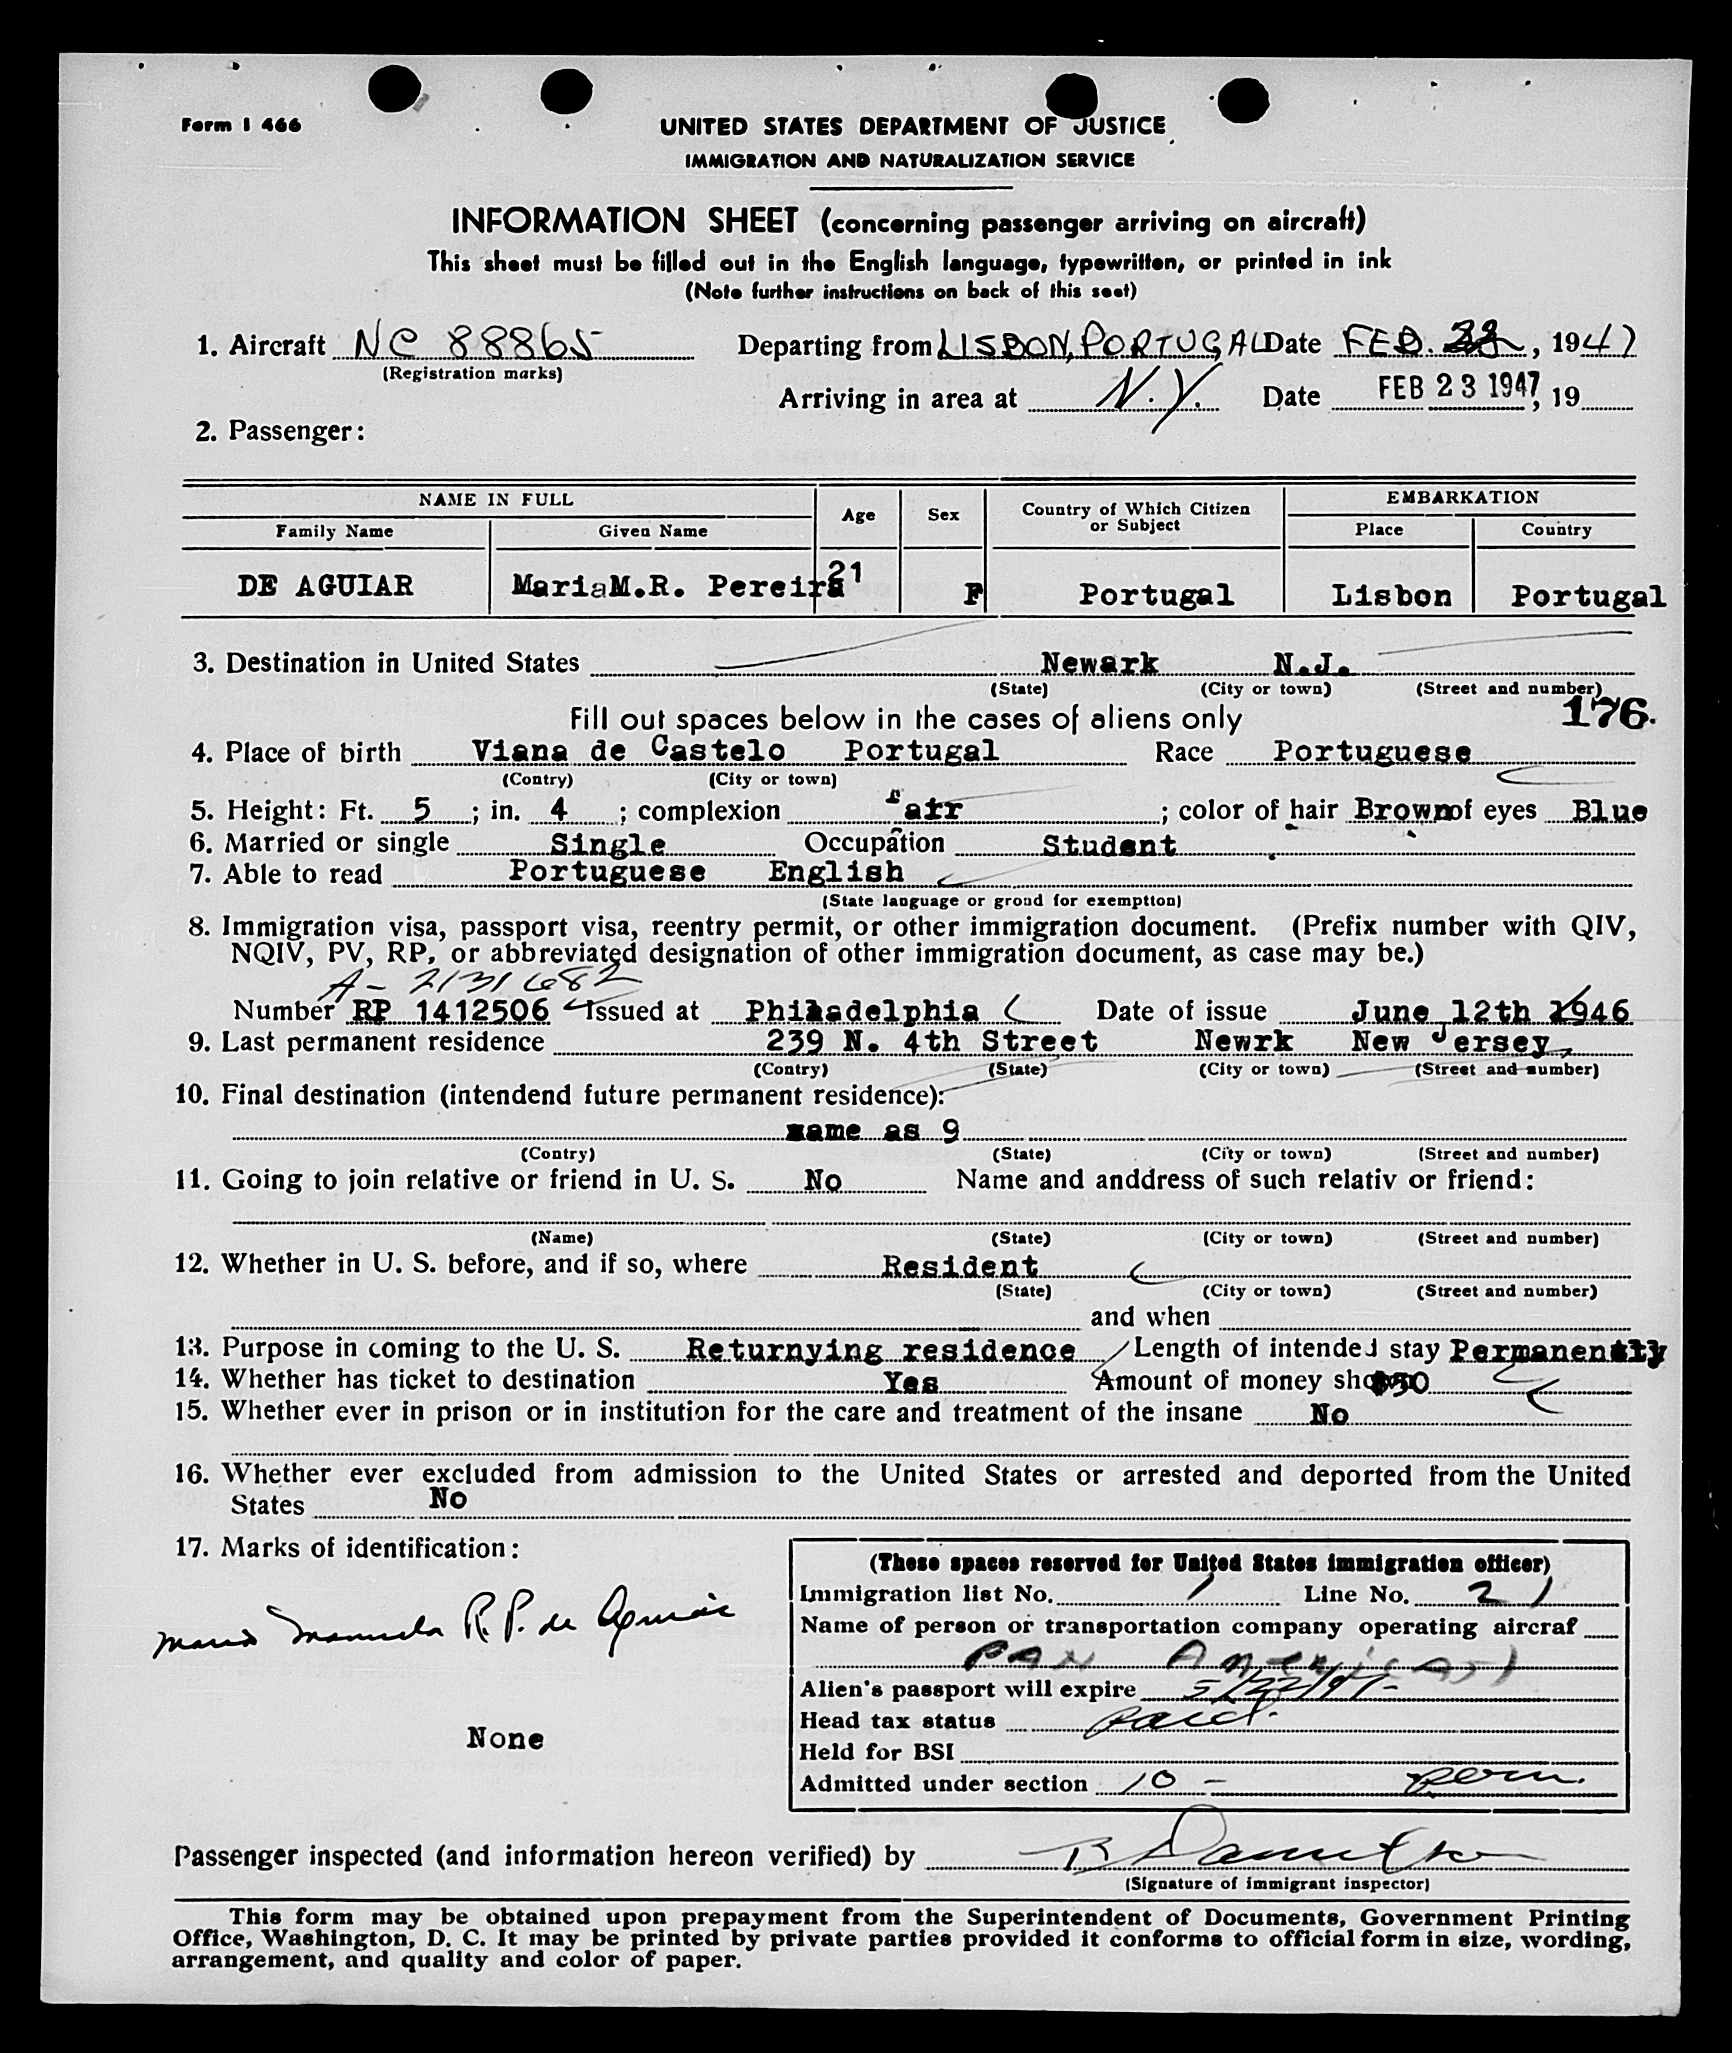 Form I 466
UNITED STATES DEPARTMENT OF JUSTICE
IMMIGRATION AND NATURALIZATION SERVICE
INFORMATION SHEET (concerning passenger arriving on aircraft)
This sheet must be filled out in the English language, typewritten, or printed in ink
(Note further instructions on back of this seet)
1. Aircraft NC 88865 Departing from LISBON, PORTUGAL Date FEB. , 1947
(Registration marks)
Arriving in area at N.Y. Date FEB 23 1947, 19
2. Passenger:
NAME IN FULL Age Sex Country of Which Citizen or Subject EMBARKATION
Family Name Given Name Place Country
DE AGUIAR Maria M.R. Pereira 21 F Portugal Lisbon Portugal
3. Destination in United States Newark N.J.
(State) (City or town) (Street and number)
Fill out spaces below in the cases of aliens only 176.
4. Place of birth Viana de Castelo Portugal Race Portuguese
(Contry) (City or town)
5. Height: Ft. 5 ; in. 4 ; complexion Fair ; color of hair Brown of eyes Blue
6. Married or single Single Occupation Student
7. Able to read Portuguese English
(State language or groud for exemption)
8. Immigration visa, passport visa, reentry permit, or other immigration document. (Prefix number with QIV,
NQIV, PV, RP, or abbreviated designation of other immigration document, as case may be.)
A- 2131682
Number RP 1412506 Issued at Philadelphia Date of issue June 12th 1946
9. Last permanent residence 239 N. 4th Street Newrk New Jersey,
(Contry) (State) (City or town) (Street and number)
10. Final destination (intendend future permanent residence):
same as 9
(Contry) (State) (City or town) (Street and number)
11. Going to join relative or friend in U. S. No Name and anddress of such relativ or friend:
(Name) (State) (City or town) (Street and number)
12. Whether in U. S. before, and if so, where Resident
(State) (City or town) (Street and number)
and when
13. Purpose in coming to the U. S. Returnying residence Length of intended stay Permanently
14. Whether has ticket to destination Yes Amount of money shown $50
15. Whether ever in prison or in institution for the care and treatment of the insane No
16. Whether ever excluded from admission to the United States or arrested and deported from the United
States No
17. Marks of identification:
Maria Manuela R. P. de Aguiar
None
(These spaces reserved for United States immigration officer)
Immigration list No. 1 Line No. 21
Name of person or transportation company operating aircraf
PAN AMERICAN
Alien's passport will expire 5/22/47-
Head tax status paid.
Held for BSI
Admitted under section 10 - perm.
Passenger inspected (and information hereon verified) by
(Signature of immigrant inspector)
This form may be obtained upon prepayment from the Superintendent of Documents, Government Printing
Office, Washington, D. C. It may be printed by private parties provided it conforms to official form in size, wording,
arrangement, and quality and color of paper.